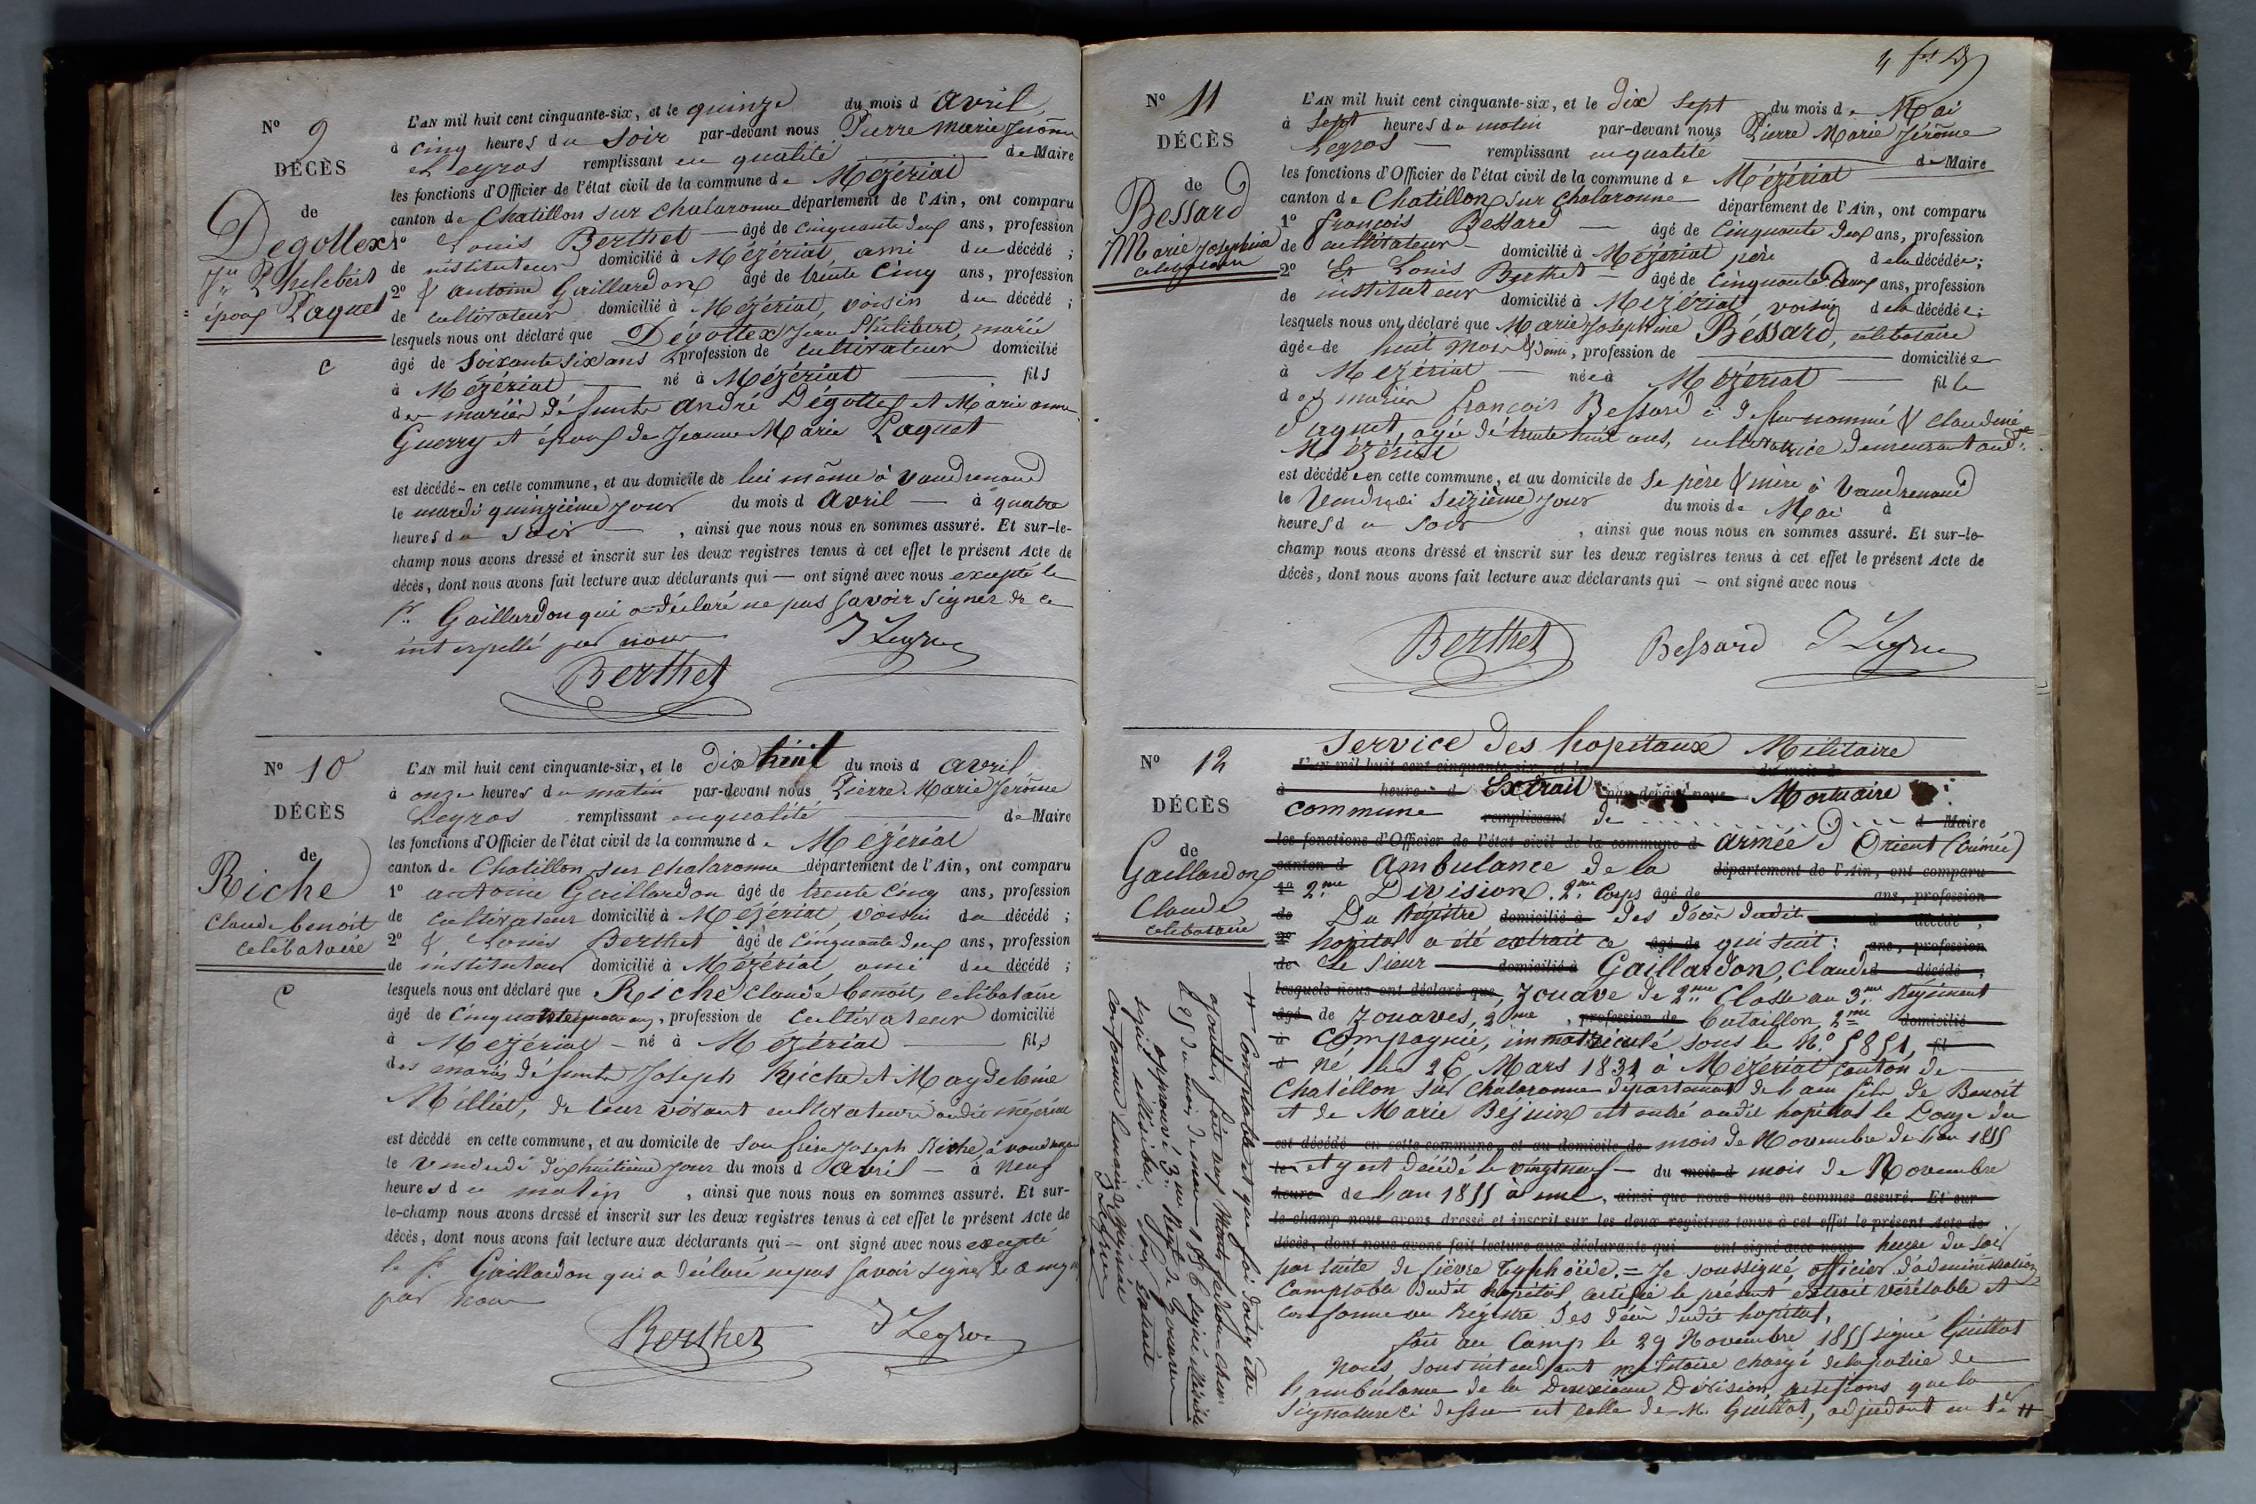 N° 9
DÉCÈS
de
Degottex
Jn Philebert
époux Paquet
c
L'AN mil huit cent cinquante-six, et le quinze du mois d avril
à cinq heures du soir par-devant nous Pierre Marie Jérôme
Legros remplissant en qualité de Maire
les fonctions d'Officier de l'état civil de la commune de Mézériat
canton de Chatillon sur Chalaronne département de l'Ain, ont comparu
1° Louis Berthet âgé de cinquante deux ans, profession
de instituteur domicilié à Mézériat, ami du décédé ;
2° & antoine Gaillardon âgé de trente cinq ans, profession
de cultivateur domicilié à Mézériat, voisin du décédé ;
lesquels nous ont déclaré que Dégottex Jean Philibert, marié
âgé de soixante six ans profession de cultivateur domicilié
à Mézériat né à Mézériat fils
des mariés défunts André Dégottex et Marie anne
Guerry et époux de Jeanne Marie Paquet
est décédé en cette commune, et au domicile de lui même à Vaudrenoud
le mardi quinzième jour du mois d avril à quatre
heures du soir , ainsi que nous nous en sommes assuré. Et sur-le-
champ nous avons dressé et inscrit sur les deux registres tenus à cet effet le présent Acte de
décès, dont nous avons fait lecture aux déclarants qui — ont signé avec nous excepté le
sr Gaillardon qui a déclaré ne pas savoir signer de ce
interpellé par nous
J Legros
Berthet
N° 10
DÉCÈS
de
Riche
Claude benoit
celibataire
c
L'AN mil huit cent cinquante-six, et le dix huit du mois d avril
à onze heures du matin par-devant nous Pierre Marie Jérôme
Legros remplissant en qualité de Maire
les fonctions d'Officier de l'état civil de la commune de Mézériat
canton de Chatillon sur Chalaronne département de l'Ain, ont comparu
1° antoine Gaillardon âgé de trente cinq ans, profession
de cultivateur domicilié à Mézériat, voisin du décédé ;
2° & Louis Berthet âgé de cinquante deux ans, profession
de instituteur domicilié à Mézériat, ami du décédé ;
lesquels nous ont déclaré que Riche Claude benoit, célibataire
âgé de cinquante ans, profession de cultivateur domicilié
à Mézériat né à Mézériat fils
des mariés défunts Joseph Riche et Magdeleine
Milliet, de leur vivant cultivateurs audit mézériat
est décédé en cette commune, et au domicile de son frère Joseph Riche, à
le vendredi dix huitième jour du mois d avril à neuf
heures du matin , ainsi que nous nous en sommes assuré. Et sur-
le-champ nous avons dressé et inscrit sur les deux registres tenus à cet effet le présent Acte de
décès, dont nous avons fait lecture aux déclarants qui — ont signé avec nous excepté
le sr Gaillardon qui a déclaré ne pas savoir signer de ce
par nous
Berthet J Legros
N° 11
DÉCÈS
de
Bessard
Marie Josephine
celibataire
L'AN mil huit cent cinquante-six, et le dix sept du mois de Mai
à sept heures du matin par-devant nous Pierre Marie Jérôme
Legros remplissant en qualité de Maire
les fonctions d'Officier de l'état civil de la commune de Mézériat
canton de Chatillon sur Chalaronne département de l'Ain, ont comparu
1° françois Bessard âgé de cinquante deux ans, profession
de cultivateur domicilié à Mézériat père de la décédée ;
2° Et Louis Berthet âgé de cinquante deux ans, profession
de instituteur domicilié à Mézériat, voisin de la décédée ;
lesquels nous ont déclaré que Marie Josephine Bessard, célibataire
âgée de huit mois & demi, profession de domiciliée
à Mézériat née à Mézériat fille
des mariés françois Bessard ci dessus nommé & Claudine
Paquet, agée de trente huit ans, cultivatrice demeurant aud.
Mézériat
est décédée en cette commune, et au domicile de se père & mère à Vaudrenoud
le Vendredi seizième jour du mois de Mai à
heures du soir , ainsi que nous nous en sommes assuré. Et sur-le-
champ nous avons dressé et inscrit sur les deux registres tenus à cet effet le présent Acte de
décès, dont nous avons fait lecture aux déclarants qui — ont signé avec nous
Berthet Bessard J Legros
N° 12
DÉCÈS
de
Gaillardon
Claude
celibataire
Service des hopitaux Militaire
L'AN mil huit cent cinquante-six, et le du mois d
à heure d Extrait par-devant nous Mortuaire
commune remplissant de d Maire
les fonctions d'Officier de l'état civil de la commune d armée d'Orient (Crimée)
canton d Ambulance de la département de l'Ain, ont comparu
1° 2me Division. 2me Corps âgé de ans, profession
de Du Régistre domicilié à des décès dudit d décédé ;
2° hopital a été extrait ce âgé de qui suit : ans, profession
de Le sieur domicilié à Gaillardon, Claude d décédé ;
lesquels nous ont déclaré que, Zouave de 2me Classe au 3me Régiment
âgé de Zouaves, 2me , profession de bataillon, 2me domicilié
à Compagnie, immatriculé sous le N° 5851, fil
d né le 26 Mars 1831 à Mézériat canton de
Chatillon sur Chalaronne département de l'ain fils de Benoit
et de Marie Bejuin est entré audit hopital le Douze du
est décédé en cette commune, et au domicile de mois de Novembre de l'an 1855
le et y est décédé le vingt neuf du mois d mois de Novembre
heure de l'an 1855 à une, ainsi que nous nous en sommes assuré. Et sur
le-champ nous avons dressé et inscrit sur les deux registres tenus à cet effet le présent Acte de
décès, dont nous avons fait lecture aux déclarants qui ont signé avec nous heure du soir
par suite de fièvre typhoïde. = Je soussigné officier d'administration
Comptable dudit hopital certifie le présent extrait véritable et
conforme au Régistre des décès dudit hopital,
fait au Camp le 29 Novembre 1855 signé Guillot
Nous, sous intendant militaire chargé de la police de
l'ambulance de la Deuxième Division, certifions que la
signature ci dessus est celle de M. Guillot, adjudant en 1er #
# Comptable et que foi doit y être
ajoutée, fait
le 25 du mois de mai 1856
approuvé 3me Régt de Zouaves
Pour Extrait
conforme
J Legros